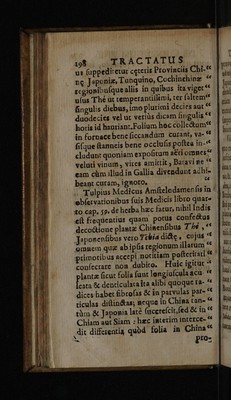 298 TRACTATUS
ut suppeditetur cęteris Provinciis Chi-"
nę Japoniæ, Tunquino, Cochinchinæ "
regionibusque aliis in quibus ita viget "
usus Thé ut temperantissimi, ter saltem "
singulis diebus, imo plurimi decies aut "
duodecies vel ut verius dicam singulis "
horis id hauriant. Folium hoc collectum "
in fornace bene siccandum curant, va-"
sisque stanneis bene occlusis postea in-"
cludunt quoniam expositum aëri omnes "
veluti vinum, vires amittit, Batavi ne "
eam cùm illud in Gallia divendunt adhi-"
beant curam, ignoro.
Tulpius Medicus Amsteledamensis in "
observationibus suis Medicis libro quar-"
to cap. 59. de herba hæc fatur, nihil Indis "
est frequentius quam potus confectus "
decoctione plantæ Chinensibus Thé, "
Japonensibus vero Tchia dictę, cujus "
omnem quæ ab ipsis regionum illarum "
primoribus accepi notitiam posteritati "
consecrare non dubito. Huic igitur "
plantæ sicut folia sunt longiuscula acu-"
leata & denticulata ita alibi quoque ra-"
dices habet fibrosas & in parvulas par-"
ticulas distinctas; neque in China tan-"
tùm & Japonia late succrescit, sed & in "
Chiam aut Siam: hæc interim interce-"
dit differentia quòd folia in China "
pro-